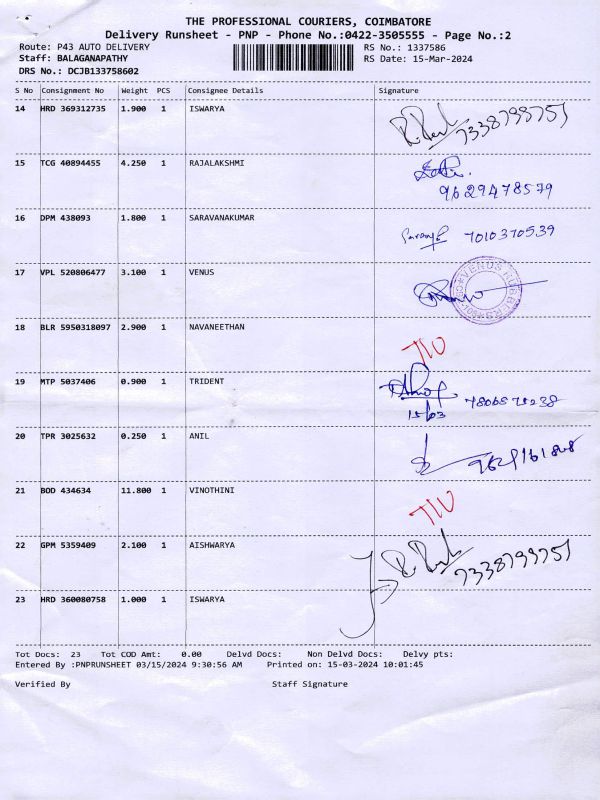 THE PROFESSIONAL COURIERS, COIMBATORE
Delivery Runsheet - PNP - Phone No.:0422-3505555 - Page No.:2
Route: P43 AUTO DELIVERY RS No.: 1337586
Staff: BALAGANAPATHY RS Date: 15-Mar-2024
DRS No.: DCJB133758602
S No Consignment No Weight PCS Consignee Details Signature
14 HRD 369312735 1.900 1 ISWARYA
7338799751
15 TCG 40894455 4.250 1 RAJALAKSHMI
9629478579
16 DPM 438093 1.800 1 SARAVANAKUMAR
7010370539
17 VPL 520806477 3.100 1 VENUS
VENUS RUBBERS
18 BLR 5950318097 2.900 1 NAVANEETHAN
19 MTP 5037406 0.900 1 TRIDENT
15/03
20 TPR 3025632 0.250 1 ANIL
21 BOD 434634 11.800 1 VINOTHINI
22 GPM 5359409 2.100 1 AISHWARYA
7338799751
23 HRD 360080758 1.000 1 ISWARYA
Tot Docs: 23 Tot COD Amt: 0.00 Delvd Docs: Non Delvd Docs: Delvy pts:
Entered By :PNPRUNSHEET 03/15/2024 9:30:56 AM Printed on: 15-03-2024 10:01:45
Verified By Staff Signature